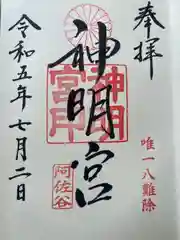 奉拝
唯一八難除
神明宮
神明
宮印
阿佐谷
令和五年七月二日